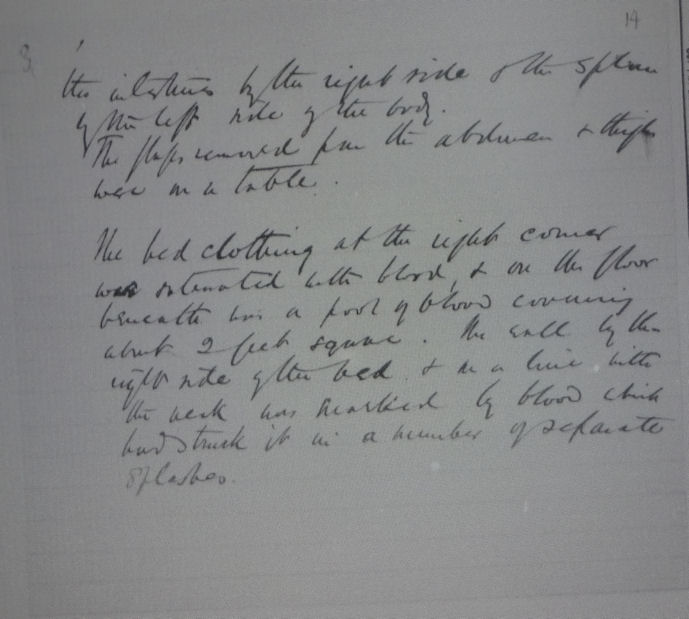 14
the intestines by the right side & the spleen
by the left side of the body.
The flaps removed from the abdomen & thighs
were on a table.
The bed clothing at the right corner
was saturated with blood, & on the floor
beneath was a pool of blood covering
about 2 feet square. The wall by the
right side of the bed & in a line with
the neck was marked by blood which
had struck it in a number of separate
splashes.